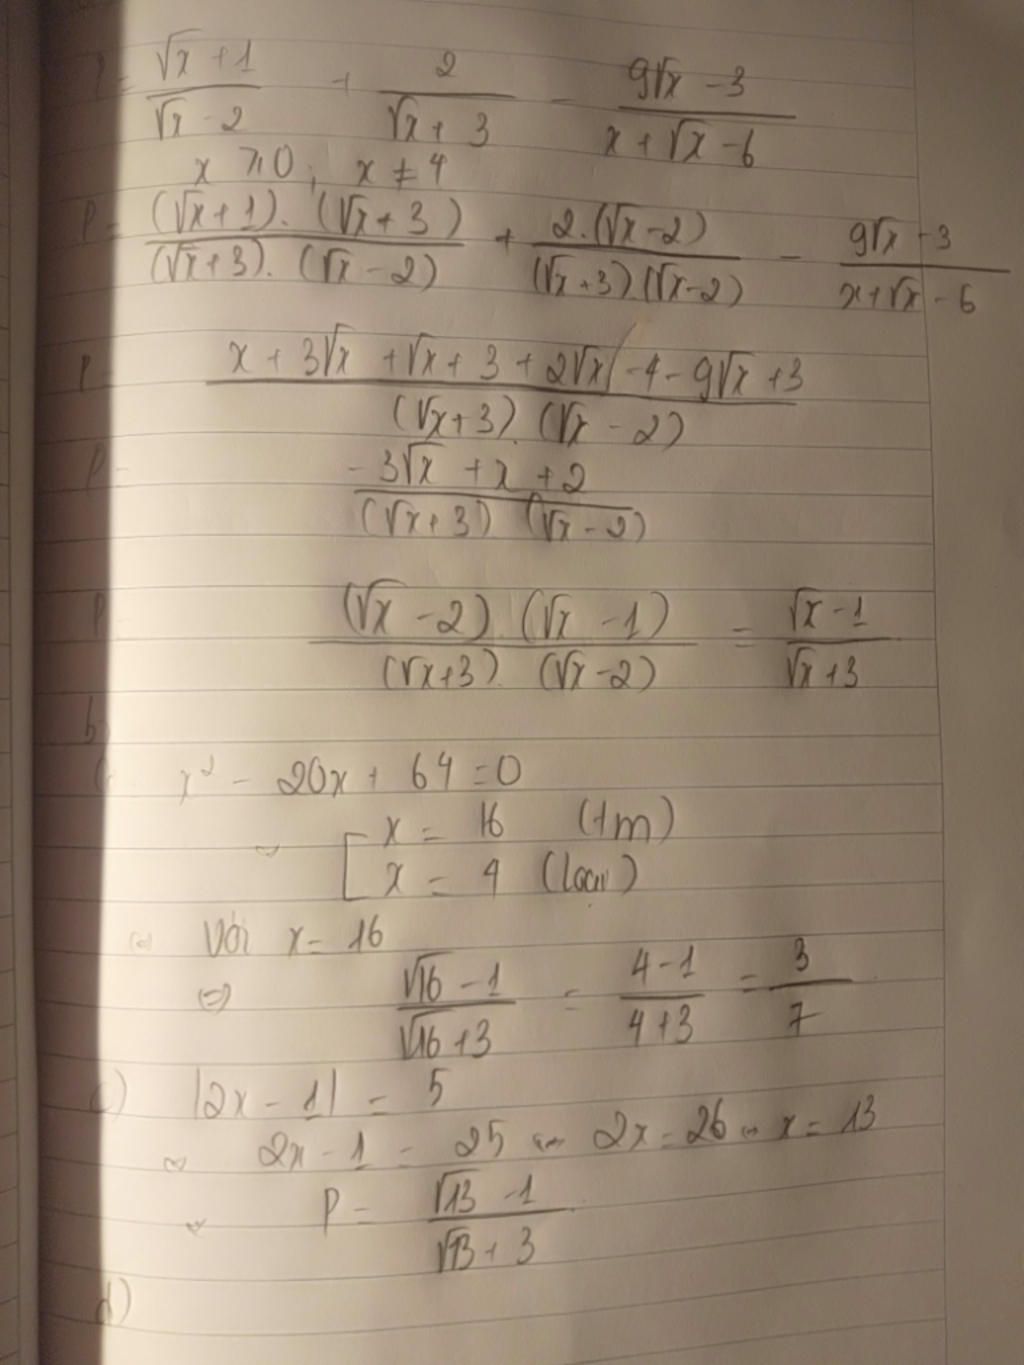 P = (√x + 1)/(√x - 2) + 2/(√x + 3) - (9√x - 3)/(x + √x - 6)
x ≥ 0, x ≠ 4
P = (√x + 1).(√x + 3)/(√x + 3).(√x - 2) + 2.(√x - 2)/(√x + 3).(√x - 2) - (9√x - 3)/(x + √x - 6)
P = (x + 3√x + √x + 3 + 2√x - 4 - 9√x + 3)/(√x + 3).(√x - 2)
P = (-3√x + x + 2)/(√x + 3).(√x - 2)
P = (√x - 2).(√x - 1)/(√x + 3).(√x - 2) = (√x - 1)/(√x + 3)
b
x² - 20x + 64 = 0
[ x = 16 (tm)
x = 4 (loại)
Với x = 16
(=) (√16 - 1)/(√16 + 3) = (4 - 1)/(4 + 3) = 3/7
c) |2x - 1| = 5
2x - 1 = 25 ⇔ 2x = 26 ⇔ x = 13
P = (√13 - 1)/(√13 + 3)
d)